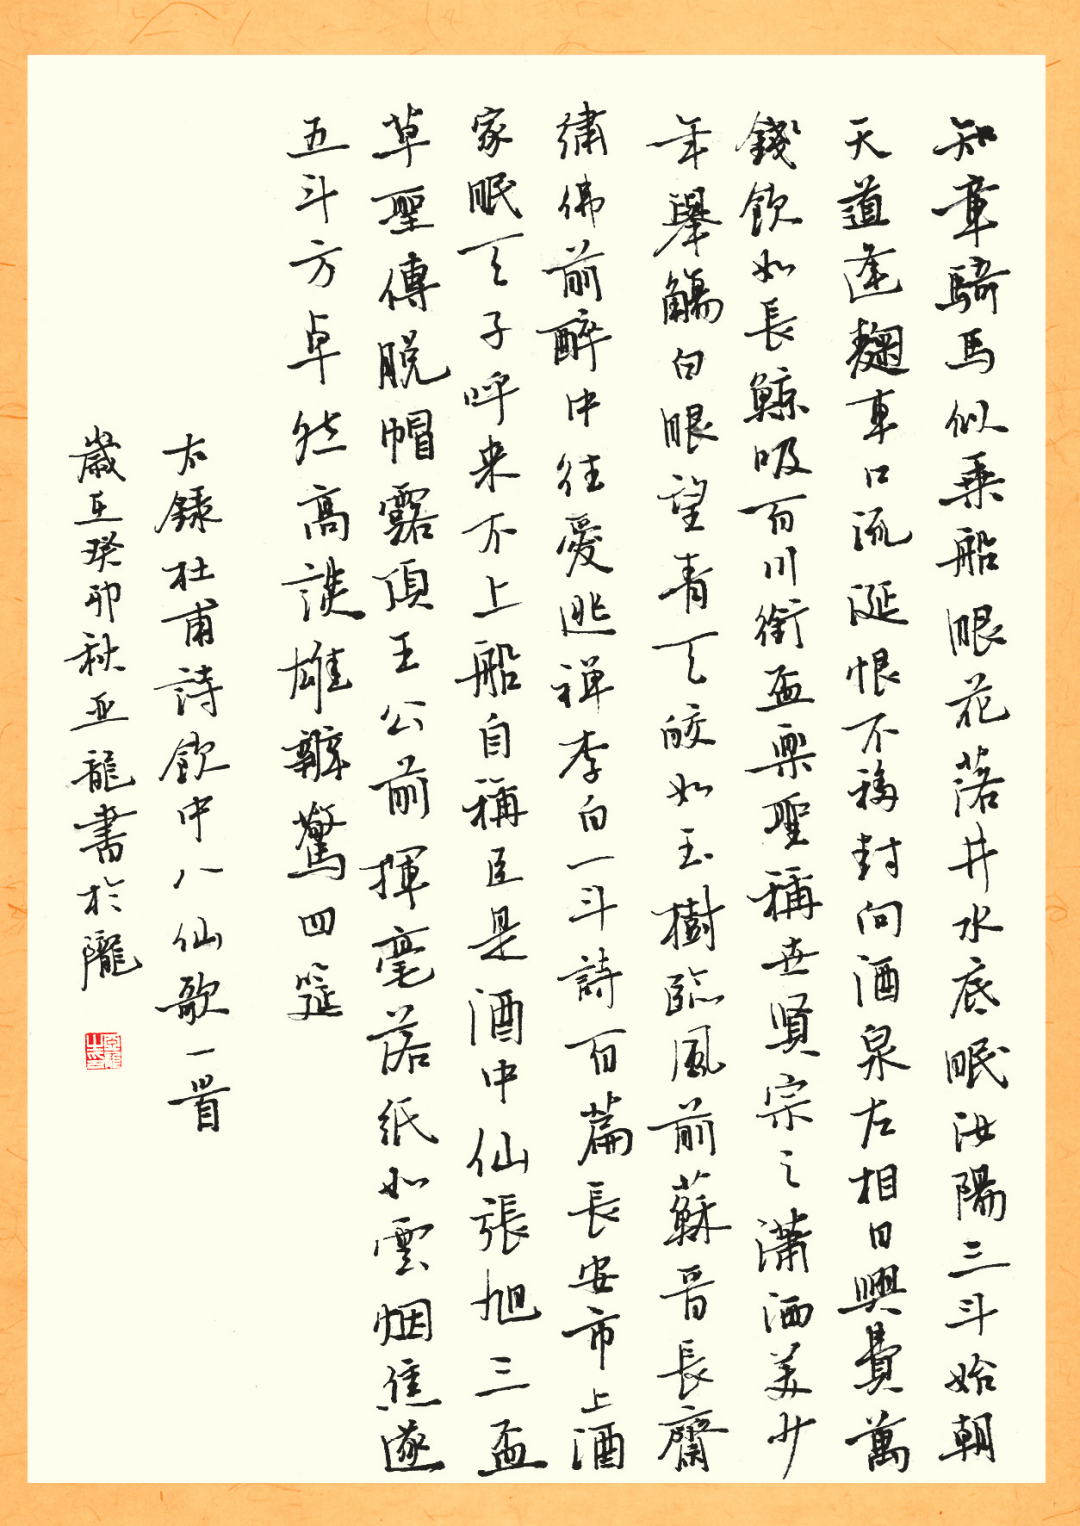 知章騎馬似乘船眼花落井水底眠汝陽三斗始朝
天道逢麴車口流涎恨不移封向酒泉左相日興費萬
錢飲如長鯨吸百川銜盃樂聖稱世賢宗之瀟洒美少
年舉觴白眼望青天皎如玉樹臨風前蘇晉長齋
繡佛前醉中往愛逃禪李白一斗詩百篇長安市上酒
家眠天子呼來不上船自稱臣是酒中仙張旭三盃
草聖傳脫帽露頂王公前揮毫落紙如雲烟焦遂
五斗方卓然高談雄辯驚四筵
右錄杜甫詩飲中八仙歌一首
歲在癸卯秋亞龍書於隴